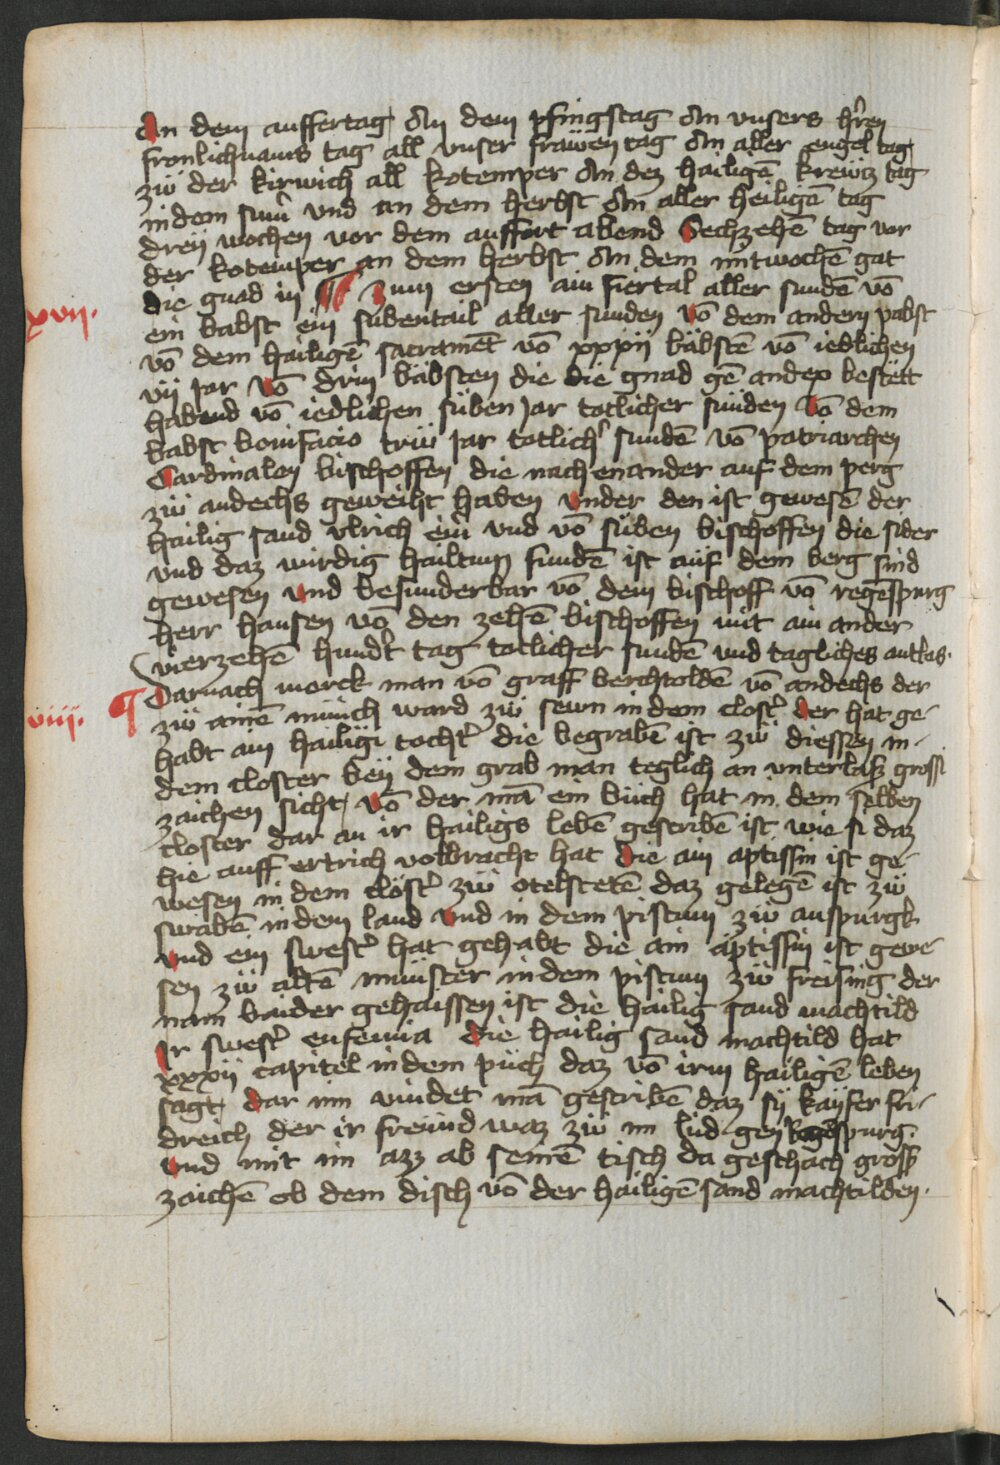 An dem auffertag An dem pfingstag An vnsers hren
fronlichnams tag all vnser fräwen tag An aller engel tag
zů der kirwich all kotemper An dez hailigē krewcz tag
in dem sum̄ vnd an dem herbst An aller heiligē tag
dreÿ wochen vor dem auffart abend Sechzehē tag vor
der kotemper an dem herbst An dem mitwochē gat
die gnad in Zum ersten ain fiertal aller sundē vō
xvij.
ein babst ein sübentail aller sunden Vō dem andern pabst
vō dem hailigē sacramēt vō xxxij bäbstē vō iedlichen
vij Jar Vō drin bäbsten die die gnad gē andex bestett
habend vō iedlichen süben Jar totlicher sünden Vō dem
babst bonifacio trü Jar totlich' sundē vō patriarchen
Cardinalen bischoffen die nach enander auf dem perg
zů andechs geweiht haben vnder den ist gewesē der
hailig sand vlrich ein vnd vō süben bischoffen die sider
vnd daz wirdig hailtum fundē ist auf dem berg sind
gewesen vnd besunderbar vō dem bischoff vō regēspurg
herr hansen vō den zehē bischoffen mit ain ander
vierzehē hundt tag totlicher sundē vnd tagliches antlas.
viiij. ¶ Darnach merck man vō graff berchtoldē vō andechs der
zů ainē münch ward zů sewn in dem clost' der hat ge-
habt ain hailigi tocht' die begrabē ist zů diessen in-
dem closter beÿ dem grab man teglich an vnterlasz grossi
zaichen sicht, vō der mā ein bůch hat in dem selben
closter dar an ir hailigs lebē gescribē ist wie si daz
hie auff ertrich volbracht hat Die ain aptissin ist ge-
wesen in dem clöst' zů otelstetē daz gelegē ist zů
swabē in dem land Vnd in dem pistum zů auspurgk
vnd ein swest' hat gehabt die ain äptissin ist gewe-
sen zů altē münster in dem pistum zů freising der
nam baider gehaissen ist die hailig sand machtild
Ir swest' eufemia Die hailig sand machtild hat
xxxij capitel in dem půch daz vō irm hailigē leben
sagt, dar inn vindet mā gescribē daz sÿ kaÿser fri-
dreich der ir freund waz zů im lůd gen Regēspurg.
Vnd mit im azz ab seinē tisch da geschach grosz
zaichē ob dem disch vō der hailigē sand machtilden.